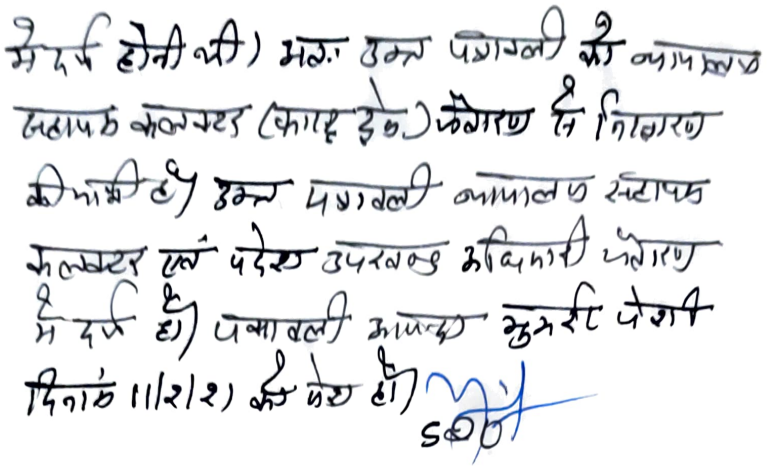 में दर्ज होनी थी। अतः उक्त पत्रावली को न्यायालय
सहायक कलक्टर (फास्ट ट्रेक) जैतारण से निस्तारण
की जानी है। उक्त पत्रावली न्यायालय सहायक
कलक्टर एवं पदेन उपखण्ड अधिकारी जैतारण
में दर्ज हो। पत्रावली आइन्दा मुकर्रर पेशी
दिनांक 11/2/21 को पेश हो।
SDO